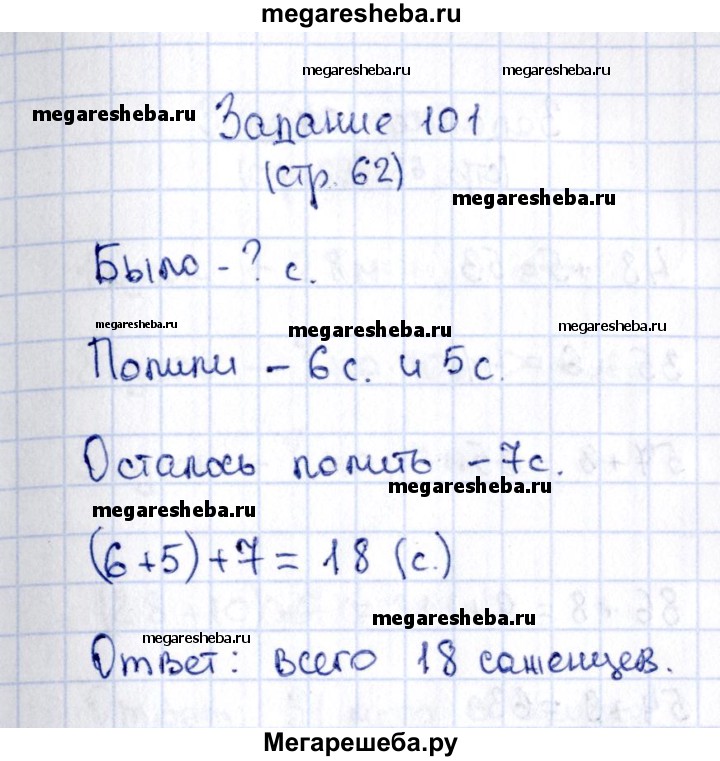 megaresheba.ru
megaresheba.ru megaresheba.ru
megaresheba.ru
Задание 101
(стр. 62)
megaresheba.ru
Было - ? с.
megaresheba.ru megaresheba.ru megaresheba.ru
Полили - 6 с. и 5 с.
Осталось полить - 7 с.
megaresheba.ru
megaresheba.ru
(6 + 5) + 7 = 18 (с.)
megaresheba.ru
megaresheba.ru
Ответ: всего 18 саженцев.
Мегарешеба.ру